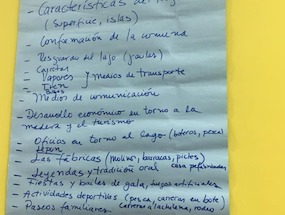 - Características del lago
(superficie, islas)
- Conformación de la comuna
- Resguardo del lago (jaulas)
- Carretas
- Vapores } medios de transporte
- Tren
Buses
- Medios de comunicación
- Desarrollo económico en torno a la
madera y el turismo
- Oficios en torno al lago (boteros, pesca)
- Las fábricas (molino, barracas, )
- Leyendas y tradición oral casa prefabricadas
- Fiestas y bailes de gala, fuegos artificiales
- Actividades deportivas (pesca, carreras en bote)
- Paseos familiares carrera a la chilena, rodeo)